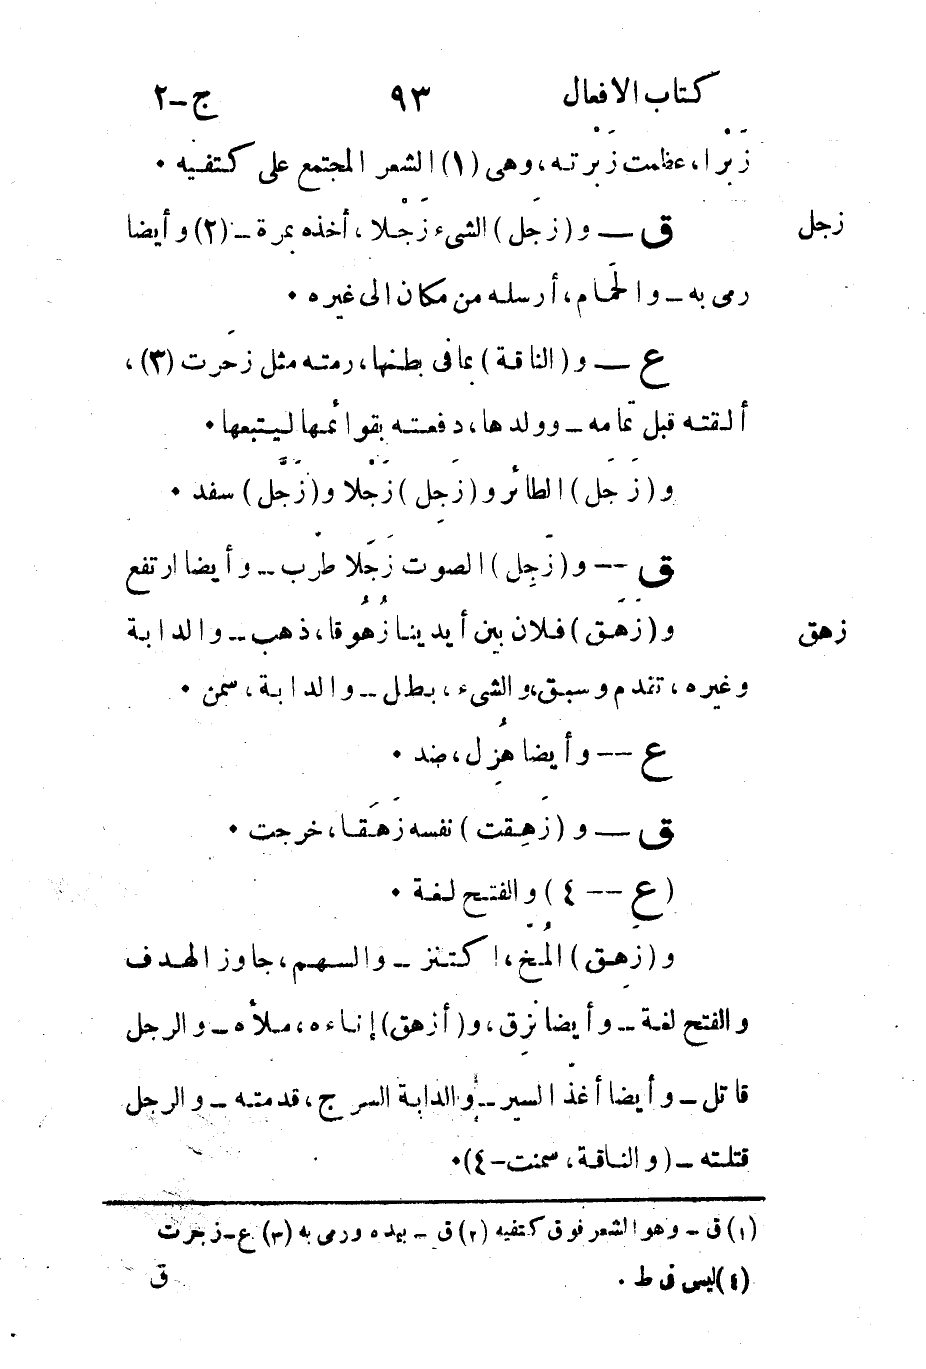 كتاب الافعال ٩٣ ج-٢
زَبْرا، عظمت زَبْرته، وهى (١) الشعر المجتمع على كتفيه ٠
زجل
ق — و (زجَل) الشىء زَجْلا، أخذه بمرة - (٢) وأيضا
رمى به - والحَمام، أرسله من مكان الى غيره ٠
ع — و (الناقة) بما فى بطنها، رمته مثل زحَرت (٣)،
ألقته قبل تمامه - وولدها، دفعته بقوائمها ليتبعها ٠
و (زَجَل) الطائر و (زَجِل) زَجْلا و (زَجَّل) سفد ٠
ق -- و (زَجِل) الصوت زَجَلا طرّب - وأيضا ارتفع
زهق
و (زَهَق) فلان بين أيدينا زُهُوقا، ذهب - والدابة
وغيره، تقدم وسبق، والشىء، بطل - والدابة، سمن ٠
ع -- وأيضا هُزِل، ضد ٠
ق — و (زَهِقت) نفسه زَهَقا، خرجت ٠
(ع -- ٤) والفتح لغة ٠
و (زَهِق) المُخّ، اكتنز - والسهم، جاوز الهدف
والفتح لغة - وأيضا نزِق، و (أزهق) إناءه، ملأه - والرجل
قاتل - وأيضا أغذّ السير - والدابة السرج، قدمته - والرجل
قتلته - (والناقة، سمنت-٤)٠
(١) ق - وهو الشعر فوق كتفيه (٢) ق - بيده ورمى به (٣) ع-زجرت
(٤) ليس فى ط ٠ ق